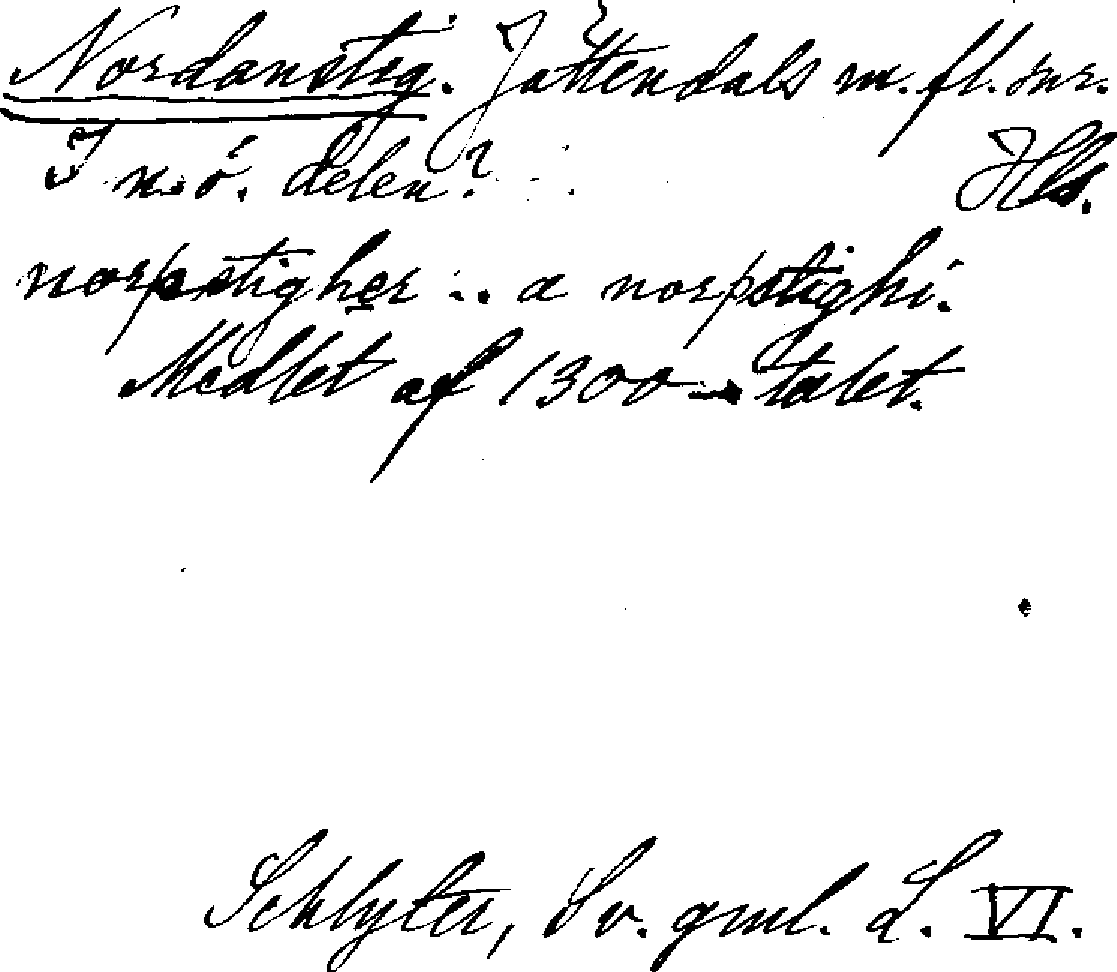 Nordanstig. Jättendals m. fl. snr.
I n. ö. delen? Hls.
norþstigher :. a norþstighi.
Medlet af 1300-talet.
Schlyter, Sv. gml. L. VI.